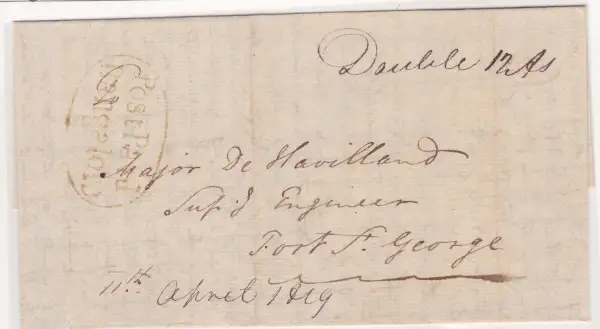 Double 12 As
Post Paid
Bangalore
To
Major De Havilland
Sup.g Engineer
Fort St. George
11th April 1819